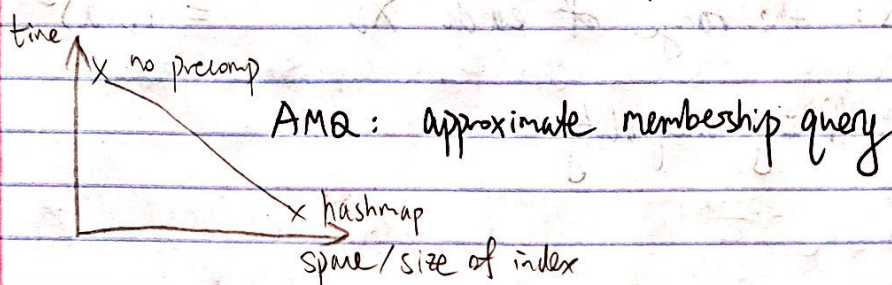 time
x no precomp
AMQ: approximate membership query
x hashmap
space/size of index